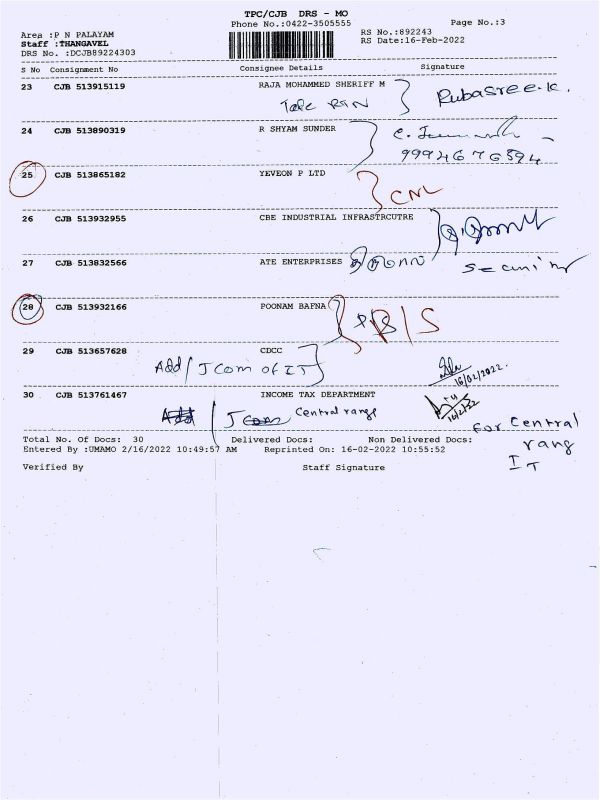 TPC/CJB DRS - MO
Phone No.:0422-3505555
Page No.:3
Area :P N PALAYAM
RS No.:892243
Staff :THANGAVEL
RS Date:16-Feb-2022
DRS No. :DCJB89224303
S No Consignment No Consignee Details Signature
23 CJB 513915119 RAJA MOHAMMED SHERIFF M
Rubasree.K.
24 CJB 513890319 R SHYAM SUNDER
9994676594
25 CJB 513865182 YEVEON P LTD
CNL
26 CJB 513932955 CBE INDUSTRIAL INFRASTRCUTRE
27 CJB 513832566 ATE ENTERPRISES
28 CJB 513932166 POONAM BAFNA
29 CJB 513657628 CDCC
Add/ JCom of IT
16/02/2022.
30 CJB 513761467 INCOME TAX DEPARTMENT
Add / JCom Central range
For Central
rang
IT
Total No. Of Docs: 30 Delivered Docs: Non Delivered Docs:
Entered By :UMAMO 2/16/2022 10:49:57 AM Reprinted On: 16-02-2022 10:55:52
Verified By Staff Signature